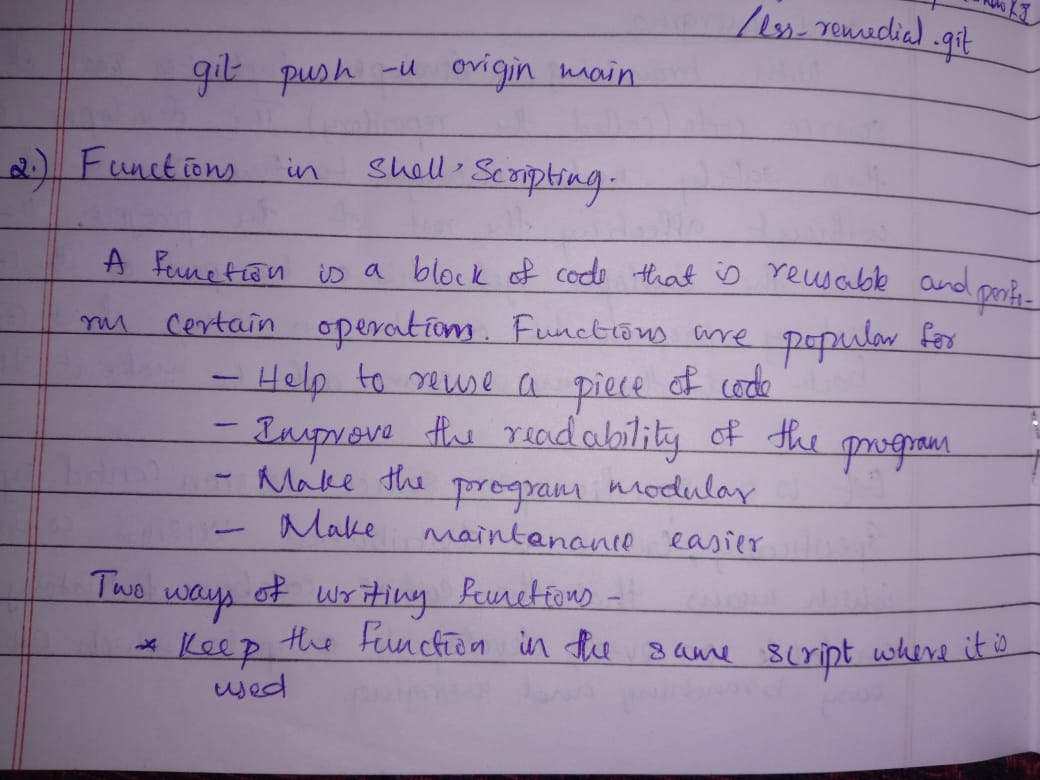 /lss-remedial.git
git push -u origin main
2.) Functions in Shell Scripting.
A function is a block of code that is reusable and perfo-
rm certain operations. Functions are popular for
- Help to reuse a piece of code
- Improve the readability of the program
- Make the program modular
- Make maintanance easier
Two ways of writing functions -
* Keep the function in the same script where it is
used